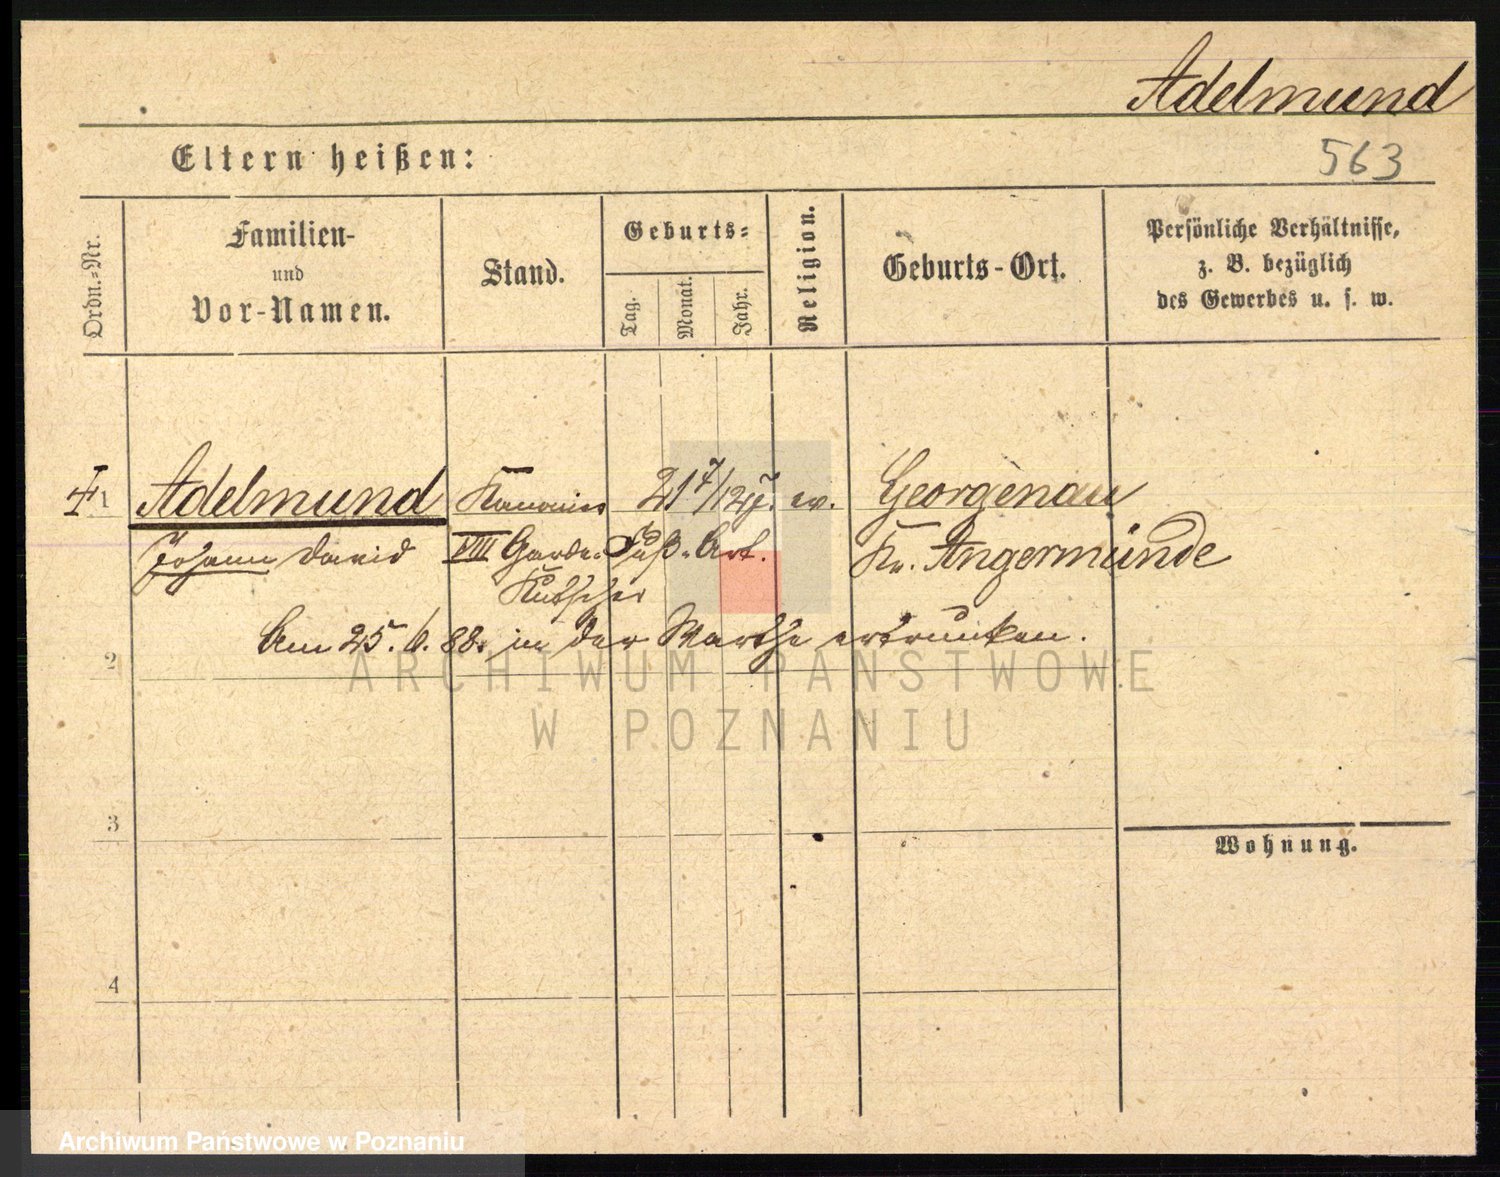 Adelmund
563
Eltern heißen:
Ordn.-Nr.
Familien-
und
Vor-Namen.
Stand.
Geburts-
Tag.
Monat.
Jahr.
Religion.
Geburts-Ort.
Persönliche Verhältnisse,
z. B. bezüglich
des Gewerbes u. s. w.
1 Adelmund Kanonier ev. Georgenau
Johann David VIII Garde-Fuß-Art. Kr. Angermünde
Kutscher
Am 25. 6. 88. in der Warthe ertrunken.
2
3
Wohnung.
4
ARCHIWUM PAŃSTWOWE
W POZNANIU
Archiwum Państwowe w Poznaniu